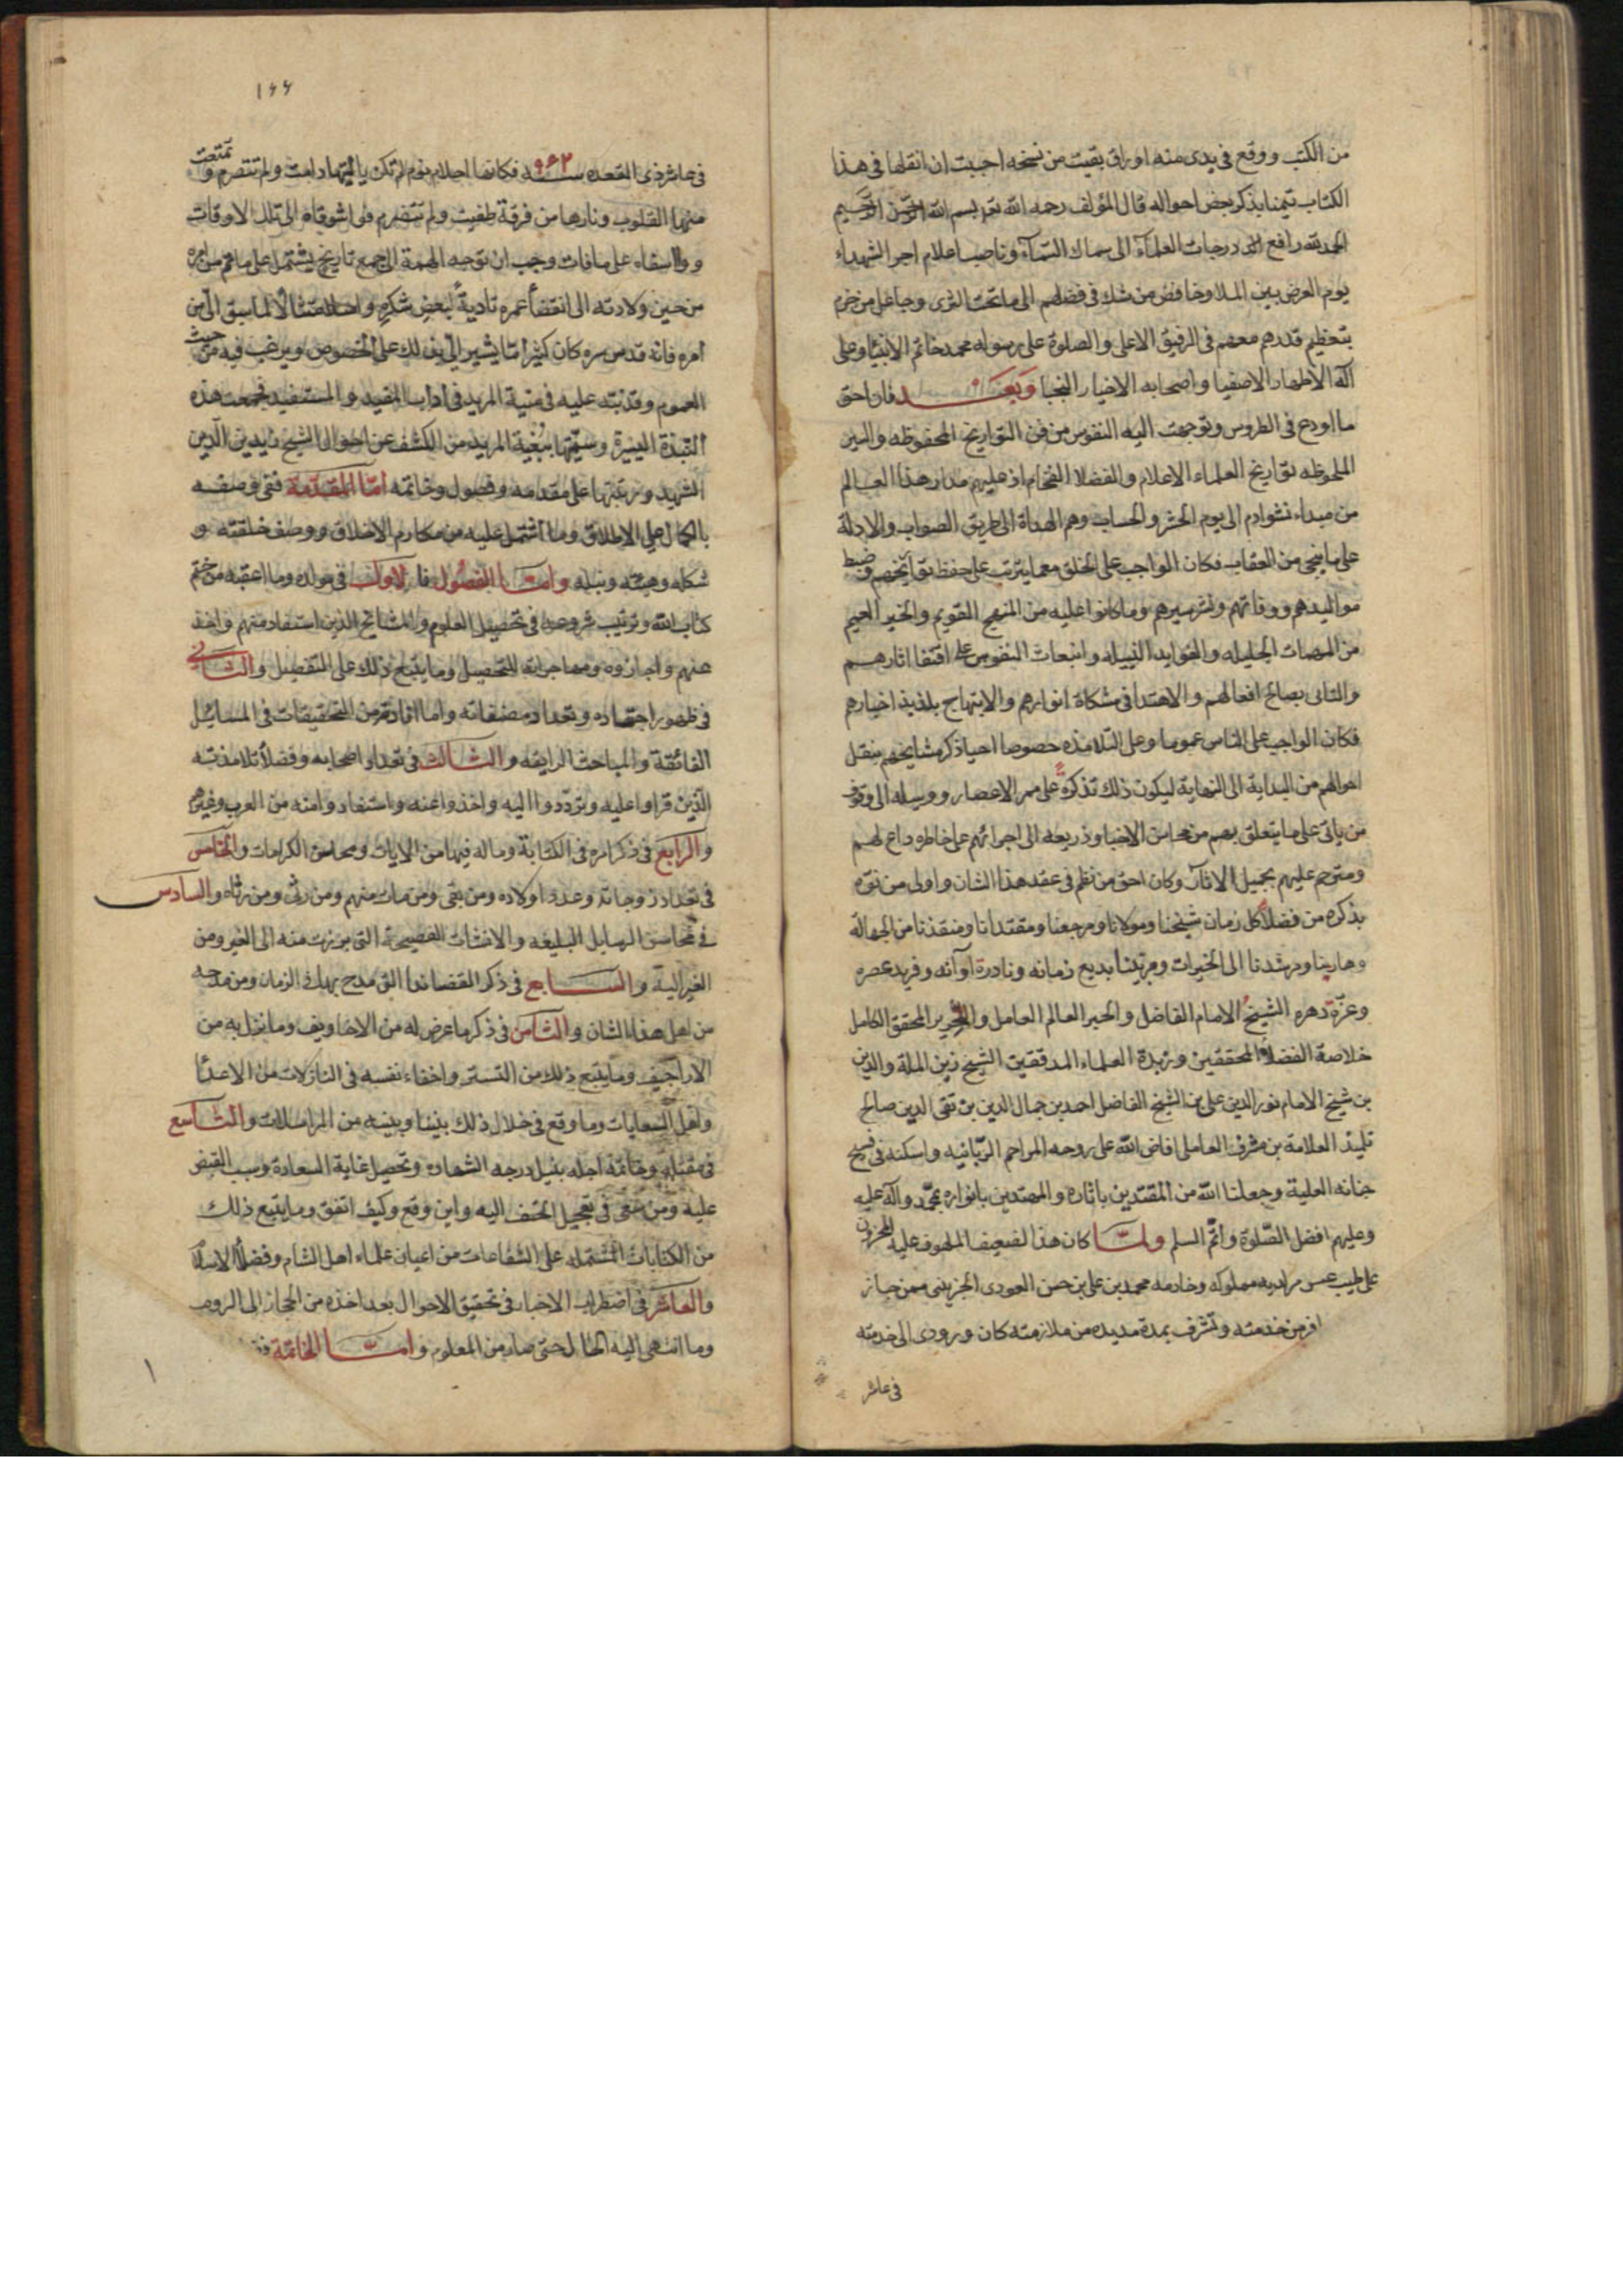 من الكتب ووقع في يدى منه اوراق بقيت من نسخه احببت ان انقلها في هذا
الكتاب تيمنا بذكر بعض احواله قال المؤلف رحمه الله تعه بسم الله الرحمن الرحيم
الحمد لله رافع درجات العلمآء الى سماك السّمآء وناصب اعلام اجر الشهداء
يوم العرض بين الملا وخافض من شك في فضلهم الى ما تحت الثرى وجاعل من خرم
بتعظيم قدرهم معهم في الرفيق الاعلى والصلوة على رسوله محمد خاتم الانبيا وعلى
آله الاطهار الاصفيا واصحابه الاخيار النجبا وَبَعَد فان احق
ما اودع في الطروس وتوجهت اليه النفوس من فن التواريخ المحفوظه والسير
الملحوظه تواريخ العلماء الاعلام والفضلا الفخام اذ عليهم مدار هذا العالم
من مبداء نشو ادم الى يوم الحشر والحساب وهم الهداة الى طريق الصواب والادلة
على ما ينجى من العقاب فكان الواجب على الخلق مع ما يترتب على حفظ تواريخهم وضبط
مواليدهم ووفاتهم ونشر سيرهم وما كانوا عليه من المنهج القويم والخير العميم
من المهمات الجليله والفوايد النبيله وانبعاث النفوس على اقتفا اثارهم
والتاسى بصالح افعالهم والاهتدا في مشكاة انوارهم والابتهاج بلذيذ اخبارهم
فكان الواجب على الناس عموما وعلى التلامذه خصوصا احيا ذكر مشايخهم بنقل
احوالهم من البداية الى النهاية ليكون ذلك تذكرةً على ممر الاعصار ووسيله الى وقوف
من ياتى على ما يتعلق بهم من محاسن الاخبار وذريعه الى اجرائهم على خاطره داع لهم
ومترحم عليهم بجميل الاثار وكان احق من نظم في عقد هذا الشان واولى من نوّه
بذكره من فضلاء كل زمان شيخنا ومولانا ومرجعنا ومقتدانا ومنقذنا من الجهالة
وهادينا ومرشدنا الى الخيرات ومربينا بديع زمانه ونادرة اوآنه وفريد عصره
وغرّة دهره الشيخ الامام الفاضل والحبر العالم العامل والنحرير المحقق الكامل
خلاصة الفضلاء المحققين وزبدة العلماء المدققين الشيخ زين الملة والدين
بن شيخ الامام نور الدين على بن الشيخ الفاضل احمد بن جمال الدين بن تقى الدين صالح
تلميذ العلامة بن مشرف العاملى افاض الله على روحه المراحم الربّانيه واسكنه في فسيح
جنانه العلية وجعلنا الله من المقتدين باثاره والمهتدين بانواره بمحمّد وآله عليه
وعليهم افضل الصّلوة واتمّ السلم ولمّا كان هذا الضعيف الملهوف عليه المحزون
على طيب عيش مملوكه وخادمه محمد بن على بن حسن العودى الجزينى ممن حاز
من خدمته وتشرف بمدة مديده من ملازمته كان ورودى الى خدمته
في عاشر
١٦٦
في عاشر ذى القعده سنه ٩٦٢ فكانها احلام نوم لم تكن ياليتها دامت ولم تتصرم وتمتعت
منها القلوب ونارها من فرقة طفيت ولم تتضرم فوا شوقاه الى تلك الاوقات
ووا اسفاه على ما فات وجب ان توجه الهمة الى جمع تاريخ يشتمل على ما تم من امره
من حين ولادته الى انقضآ عمره تاديةً لبعض شكره وامتثالاً لما سبق الىّ من
امره فانه قدس سره كان كثيرا ما يشير الىّ بذلك على الخصوص ويرغب فيه من حيث
العموم وقد نبّه عليه في منية المريد في اداب المفيد والمستفيد فجمعت هذه
النبذة اليسيرة وسميتها بُغية المريد من الكشف عن احوال الشيخ زين الدين
الشهيد ورتبتها على مقدمه وفصول وخاتمه امّا المقدّمة ففى وصفه
بالكمال على الاطلاق وما اشتمل عليه من مكارم الاخلاق ووصف خلقته و
شكله وهيئته ونبله وامّا الفصُول فالاوّل في مولده وما اعقبه من ختم
كتاب الله وترتيب شروعه في تحصيل العلوم والمشائخ الذين استفاد منهم واخذ
عنهم واجازوه ومهاجراته للتحصيل وما يتبع ذلك على التفصيل والثّانى
في ظهور اجتهاده وتعداد مصنفاته وما افادته من التحقيقات في المسائل
الفائقة والمباحث الرايقه والثّالث في تعداد اصحابه وفضلاء تلامذته
الّذين قراوا عليه وتردّدوا اليه واخذوا عنه واستفادوا منه من العرب وغيرهم
والرّابع في ذكر امره في الكتابة وما له فيها من الايات ومحاسن الكرامات والخَامس
في تعداد زوجاته وعدد اولاده ومن بقى ومن مات منهم ومن رثى ومن رثاه والسّادس
في محاسن الرسايل البليغه والانشات الفصيحة التى برزت منه الى الغير ومن
الغير اليه والسّابع في ذكر القصائد التى مدح بها في الزمان ومن مدحه
من اهل هذا الشان والثّامن في ذكر ما عرض له من الاخاويف وما نزل به من
الاراجيف وما يتبع ذلك من التستر واخفاء نفسه في النازلات من الاعدآ
واهل السعايات وما وقع في خلال ذلك بيننا وبينه من المراسلات والتّاسع
في مقتله وخاتمة اجله بنيل درجه الشهاده وتحصيل غاية السعادة وسبب القبض
عليه ومن سعى في تعجيل الحتف اليه واين وقع وكيف اتفق وما يتبع ذلك
من الكتابات المشتمله على الشفاعات من اعيان علماء اهل الشام وفضلاء الاسلام
والعاشر في اضطراب الاخبار في تحقيق الاحوال بعد اخذه من الحجاز الى الروم
وما انتهى اليه الحال حتى صار من المعلوم وامّا الخاتمة
١